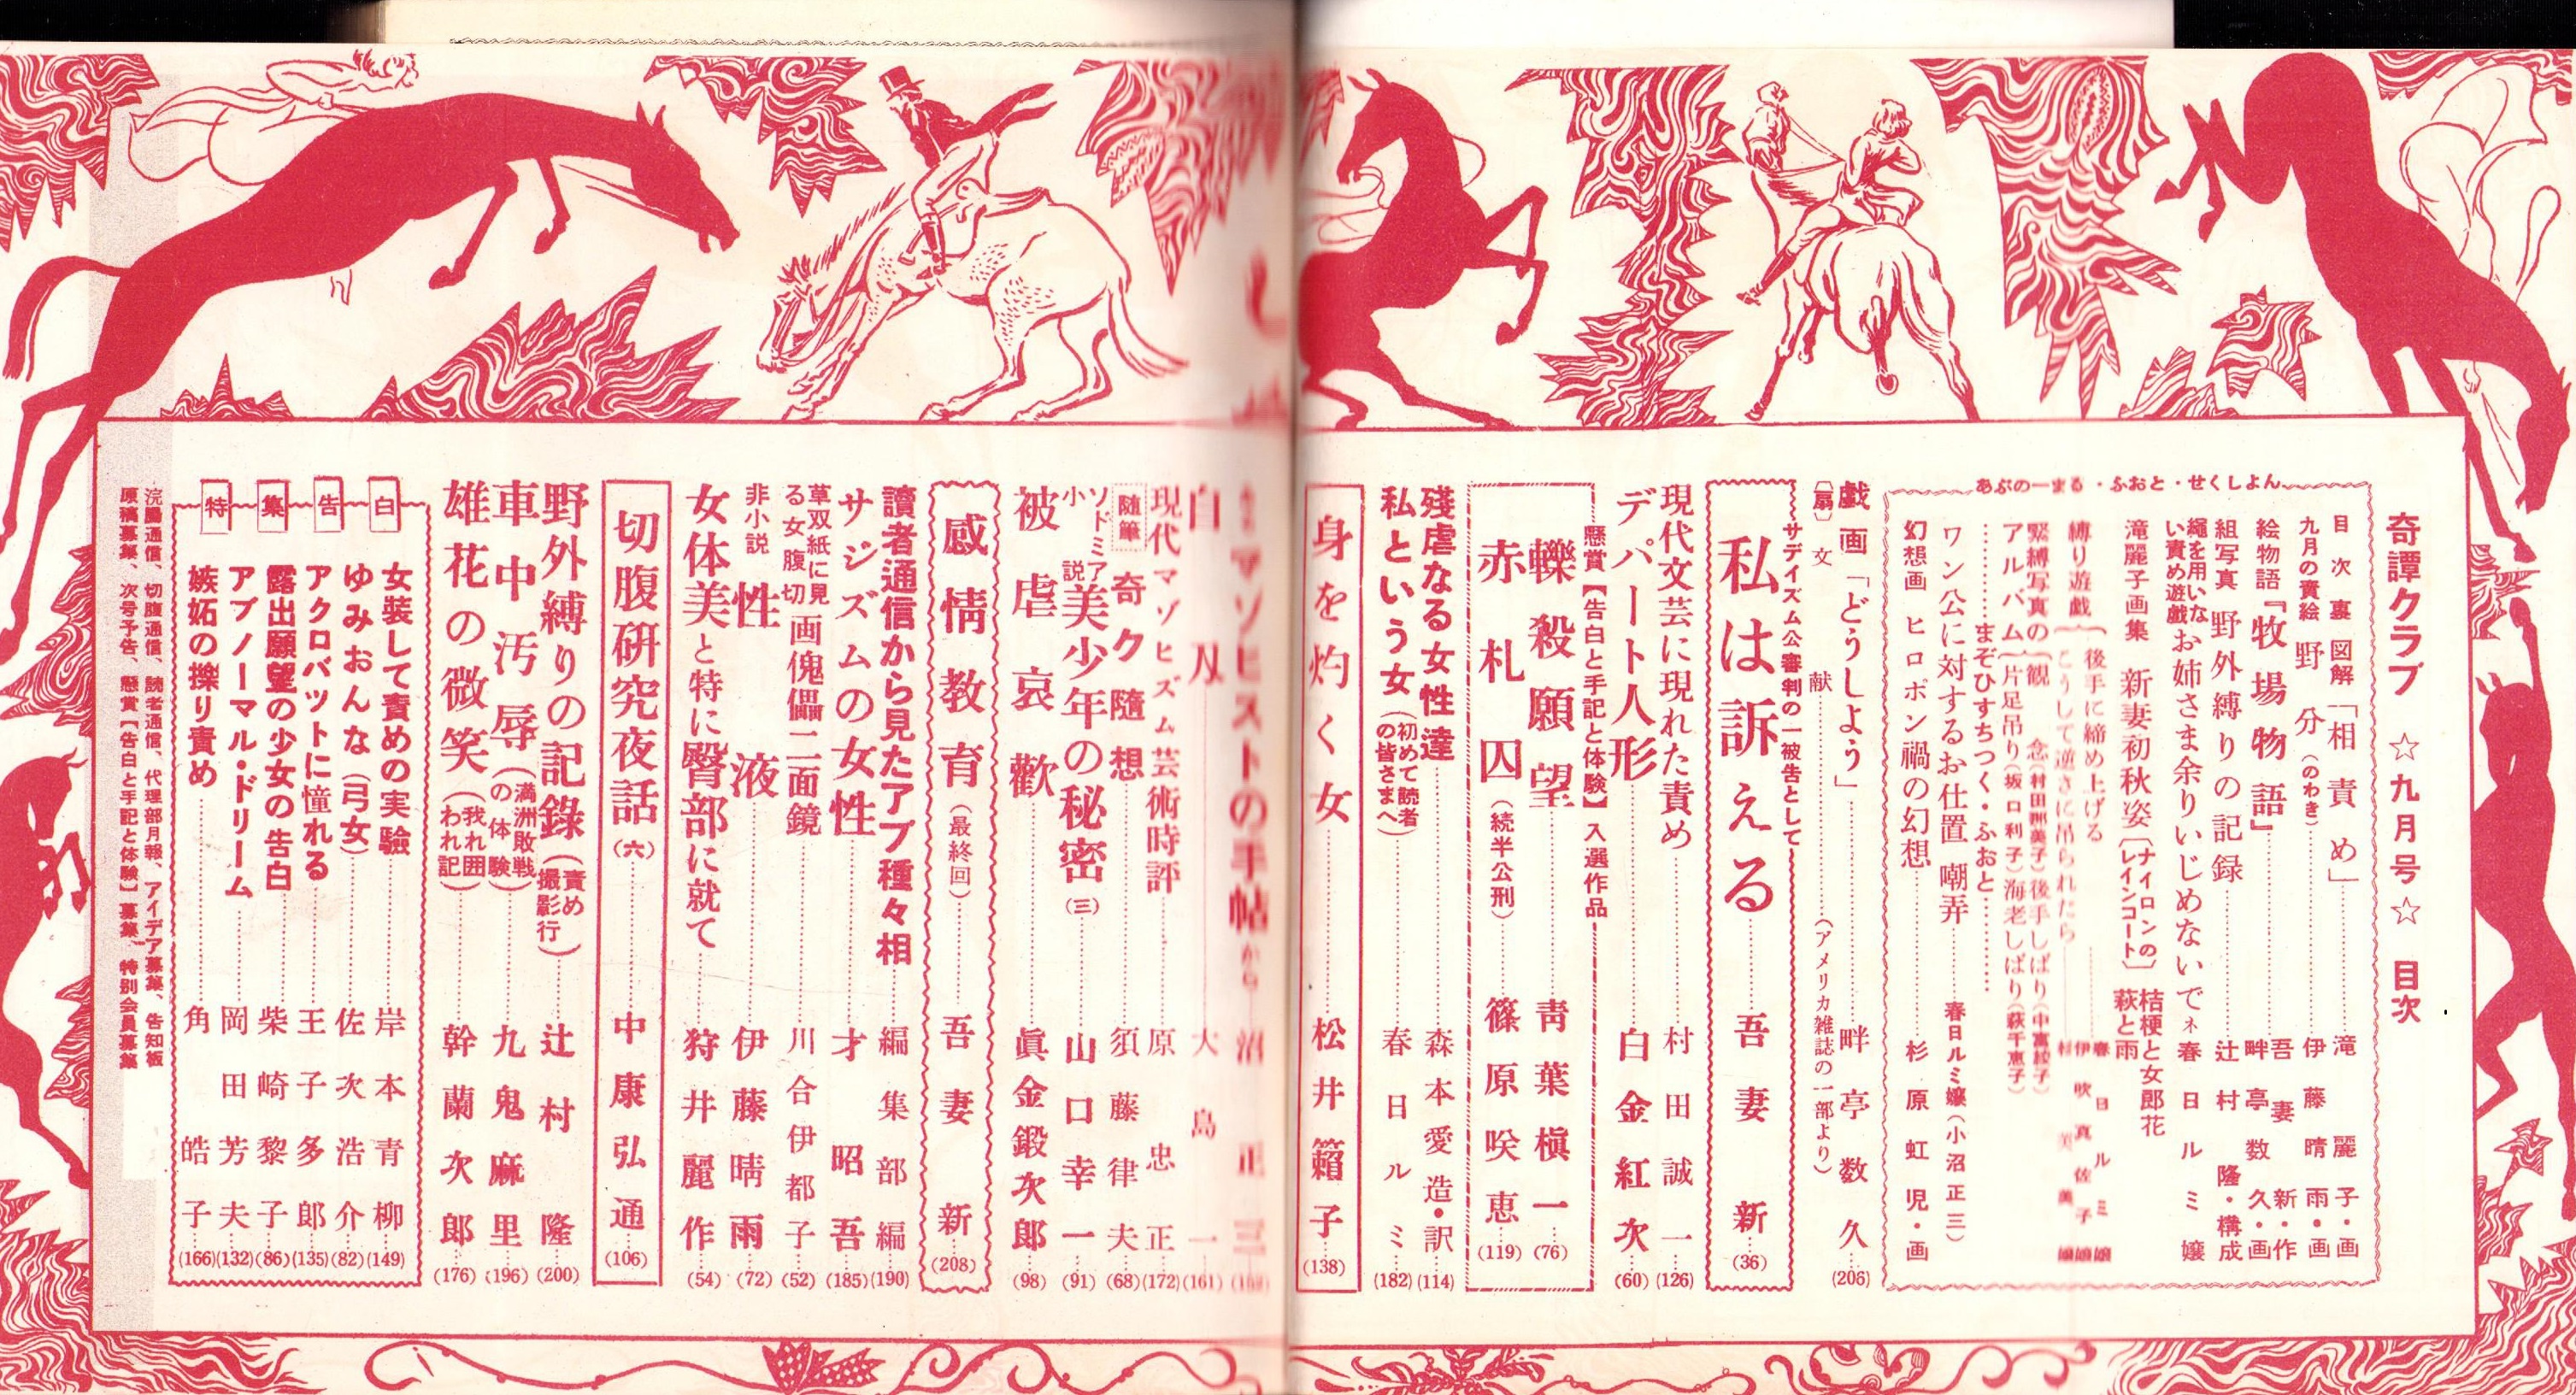 奇譚クラブ ☆九月号☆ 目次
あぶのーまる・ふおと・せくしよん
目次裏 図解「相責め」 滝麗子・画
九月の責絵 野分(のわき) 伊藤晴雨・画
絵物語『牧場物語』 吾妻新・作 畔亭数久・画
組写真 野外縛りの記録 辻村隆・構成
繩を用いない責め遊戯 お姉さま余りいじめないでネ 春日ルミ嬢
滝麗子画集 新妻初秋姿(ナイロンのレインコート) 桔梗と女郎花 萩と雨
縛り遊戯(後手に締め上げる こうして逆さに吊られたら 春日ルミ嬢 伊吹真佐子嬢
緊縛写真のアルバム(観念(村田那美子)後手しばり(中富綾子) 片足吊り(坂口利子)海老しばり(萩千恵子)
まぞひすちつく・ふおと
ワン公に対するお仕置 嘲弄 春日ルミ嬢(小沼正三)
幻想画 ヒロポン禍の幻想 杉原虹児・画
戯画「どうしよう」 畔亭数久 (206)
〔扇〕文献 (アメリカ雑誌の一部より)
サデイズム公審判の一被告として
私は訴える 吾妻新 (36)
現代文芸に現れた責め 村田誠一 (126)
デパート人形 白金紅次 (60)
懸賞【告白と手記と体験】入選作品
轢殺願望 靑葉槇一 (76)
赤札囚(続半公刑) 篠原咲恵 (119)
殘虐なる女性達 森本愛造・訳 (114)
私という女(初めて読者の皆さまへ) 春日ルミ (182)
身を灼く女 松井籟子 (138)
マゾヒストの手帖から 沼正三
白刄 大島一 (161)
現代マゾヒズム芸術時評 原忠正 (172)
随筆 奇ク隨想 須藤律夫 (68)
ソドミア小説 美少年の秘密(三) 山口幸一 (91)
被虐哀歡 眞金鍛次郎 (98)
感情教育(最終回) 吾妻新 (208)
讀者通信から見たアブ種々相 編集部編 (190)
サジズムの女性 才昭吾 (185)
草双紙に見る女腹切 画傀儡二面鏡 川合伊都子 (52)
非小説 性液 伊藤晴雨 (72)
女体美と特に臀部に就て 狩井麗作 (54)
切腹研究夜話(六) 中康弘通 (106)
野外縛りの記錄(責め撮影行) 辻村隆 (200)
車中汚辱(満洲敗戦の体験) 九鬼麻里 (196)
雄花の微笑(我れ囲われ記) 幹蘭次郎 (176)
告白特集
女装して責めの実驗 岸本青柳 (149)
ゆみおんな(弓女) 佐次浩介 (82)
アクロバットに憧れる 王子多郎 (135)
露出願望の少女の告白 柴崎黎子 (86)
アブノーマル・ドリーム 岡田芳夫 (132)
嫉妬の擽り責め 角皓子 (166)
浣腸通信、切腹通信、読者通信、代理部月報、アイデア募集、告知板
原稿募集、次号予告、懸賞【告白と手記と体験】募集、特別会員募集